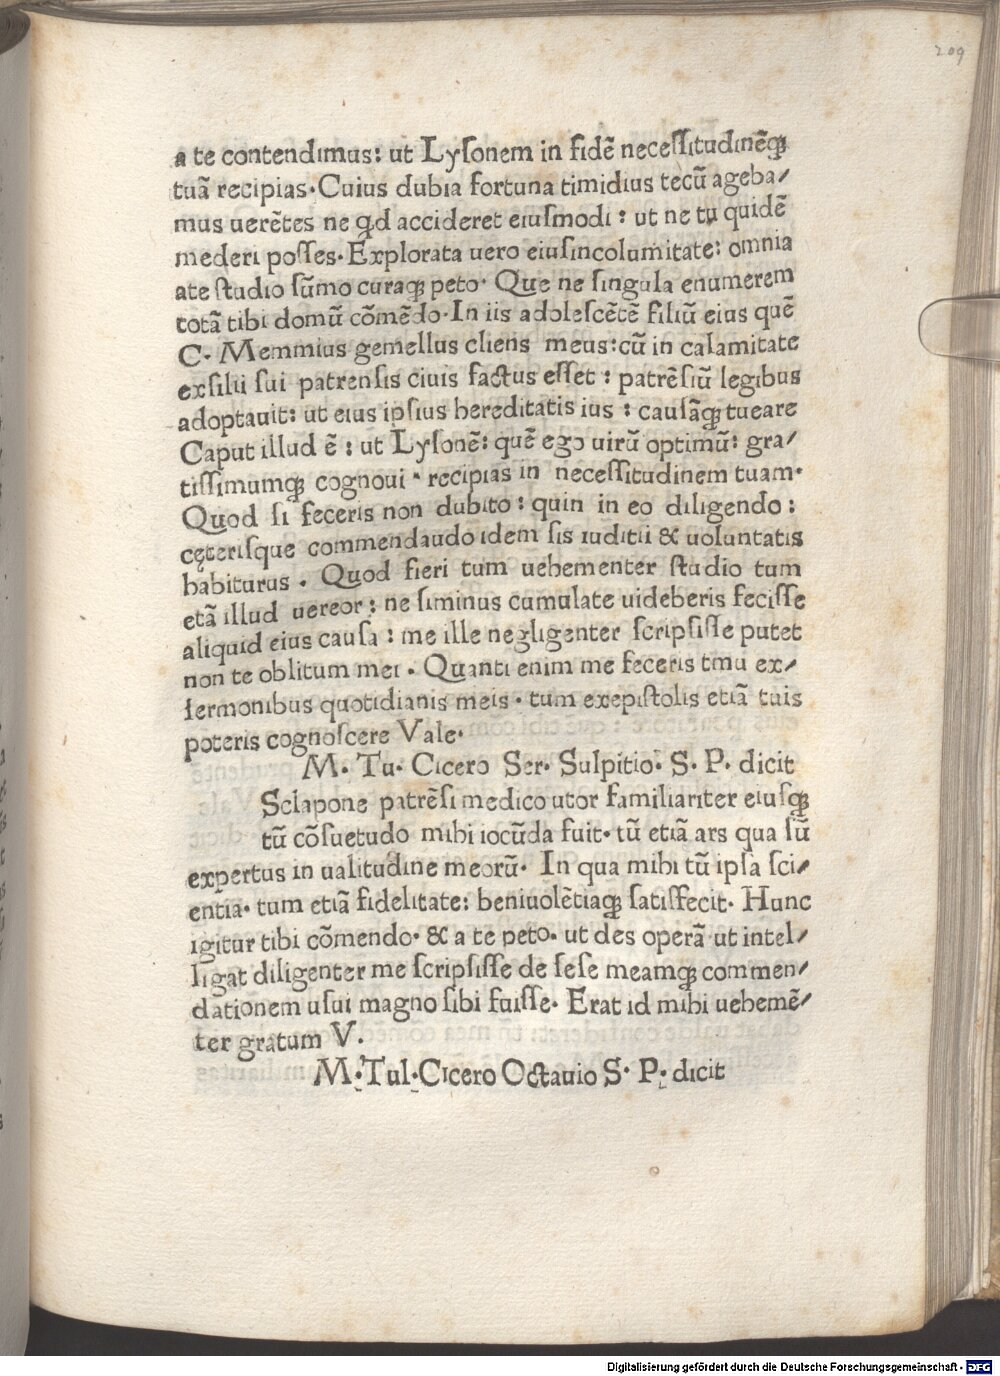 209
a te contendimus: ut Lyſonem in fidē neceſſitudinēqꝫ
tuā recipias·Cuius dubia fortuna timidius tecū ageba/
mus uerētes ne qd accideret eiuſmodi : ut ne tu quidē
mederi poſſes·Explorata uero eiuſincolumitate: omnia
ate ſtudio ſūmo curaqꝫ peto· Que ne ſingula enumerem
totā tibi domū cōmēdo·In iis adoleſcētē filiū eius quē
C· Memmius gemellus cliens meus:cū in calamitate
exſilii ſui patrenſis ciuis factus eſſet : patrēſiū legibus
adoptauit: ut eius ipſius hereditatis ius : cauſāqꝫ tueare
Caput illud ē : ut Lyſonē: quē ego uirū optimū: gra/
tiſſimumqꝫ cognoui · recipias in neceſſitudinem tuam·
Quod ſi feceris non dubito : quin in eo diligendo :
cęteriſque commendaudo idem ſis iuditii & uoluntatis
habiturus · Quod fieri tum uehementer ſtudio tum
etā illud uereor : ne ſiminus cumulate uideberis feciſſe
aliquid eius cauſa : me ille negligenter ſcripſiſſe putet
non te oblitum mei · Quanti enim me feceris tmu ex/
ſermonibus quotidianis meis · tum exepiſtolis etiā tuis
poteris cognoſcere Vale·
M· Tu· Cicero Ser· Sulpitio· S· P· dicit
Sclapone patrēſi medico utor familiariter eiuſqꝫ
tū cōſuetudo mihi iocūda fuit· tū etiā ars qua ſū
expertus in ualitudine meorū· In qua mihi tū ipſa ſci/
entia· tum etiā fidelitate: beniuolētiaqꝫ ſatiſfecit· Hunc
igitur tibi cōmendo· & a te peto· ut des operā ut intel/
ligat diligenter me ſcripſiſſe de ſeſe meamqꝫ commen/
dationem uſui magno ſibi fuiſſe· Erat id mihi uehemē/
ter gratum V·
M·Tul·Cicero Octauio S· P· dicit
Digitalisierung gefördert durch die Deutsche Forschungsgemeinschaft - DFG